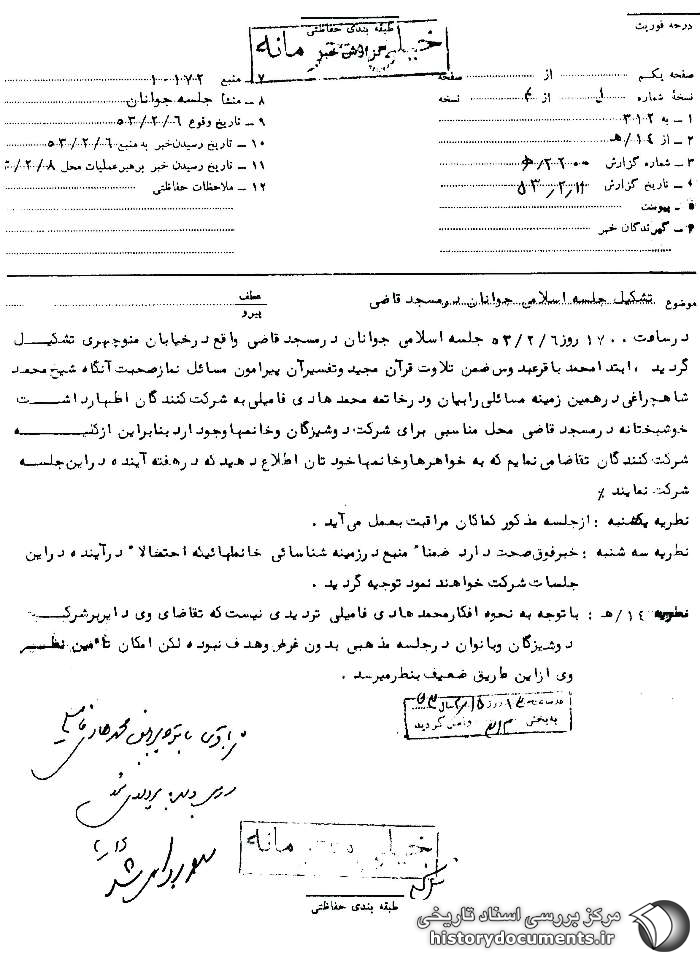 درجه فوریت
طبقه بندی حفاظتی
خیلی محرمانه
صفحه یکم از صفحه
نسخهٔ شماره از ٤ نسخه
١ – به ٣١٢
٢ – از ١٤/هـ
٣ – شماره گزارش
٤ – تاریخ گزارش
٥ – پیوست
٦ – گیرندگان خبر
٧ – منبع ١٠١٧٢
٨ – منشأ جلسه جوانان
٩ – تاریخ وقوع ٥٣/٢/٦
١٠ – تاریخ رسیدن خبر به منبع ٥٣/٢/٦
١١ – تاریخ رسیدن خبر برهبر عملیات محل ٢/٨/
١٢ – ملاحظات حفاظتی
موضوع تشکیل جلسه اسلامی جوانان در مسجد قاضی
عطف
پیرو
در ساعت ١٧٠٠ روز ٥٣/٢/٦ جلسه اسلامی جوانان در مسجد قاضی واقع در خیابان منوچهری تشکیل
گردید ، ابتدا محمد باقر عبدوس ضمن تلاوت قرآن مجید و تفسیر آن پیرامون مسائل نماز صحبت آنگاه شیخ محمد
شاهچراغی در همین زمینه مسائلی را بیان و در خاتمه محمد هادی فامیلی به شرکت کنندگان اظهار داشت
خوشبختانه در مسجد قاضی محل مناسبی برای شرکت دوشیزگان و خانمها وجود دارد بنابراین از کلیه
شرکت کنندگان تقاضا می نمایم که به خواهرها و خانمها خودتان اطلاع دهید که در هفته آینده در این جلسه
شرکت نمایند ٪
نظریه یکشنبه : از جلسه مذکور کماکان مراقبت بعمل می آید .
نظریه سه شنبه : خبر فوق صحت دارد ضمنا" منبع در زمینه شناسائی خانمهائیکه احتمالا" در آینده در این
جلسات شرکت خواهند نمود توجیه گردید .
نظریه ١٤/هـ : با توجه به نحوه افکار محمد هادی فامیلی تردیدی نیست که تقاضای وی دایر بر شرکت
دوشیزگان و بانوان در جلسه مذهبی بدون غرض و هدف نبوده لکن امکان تأمین نظر
وی از این طریق ضعیف بنظر میرسد .
به بخش ٣١٢ واصل گردید
خیلی محرمانه
طبقه بندی حفاظتی
مرکز بررسی اسناد تاریخی
historydocuments.ir